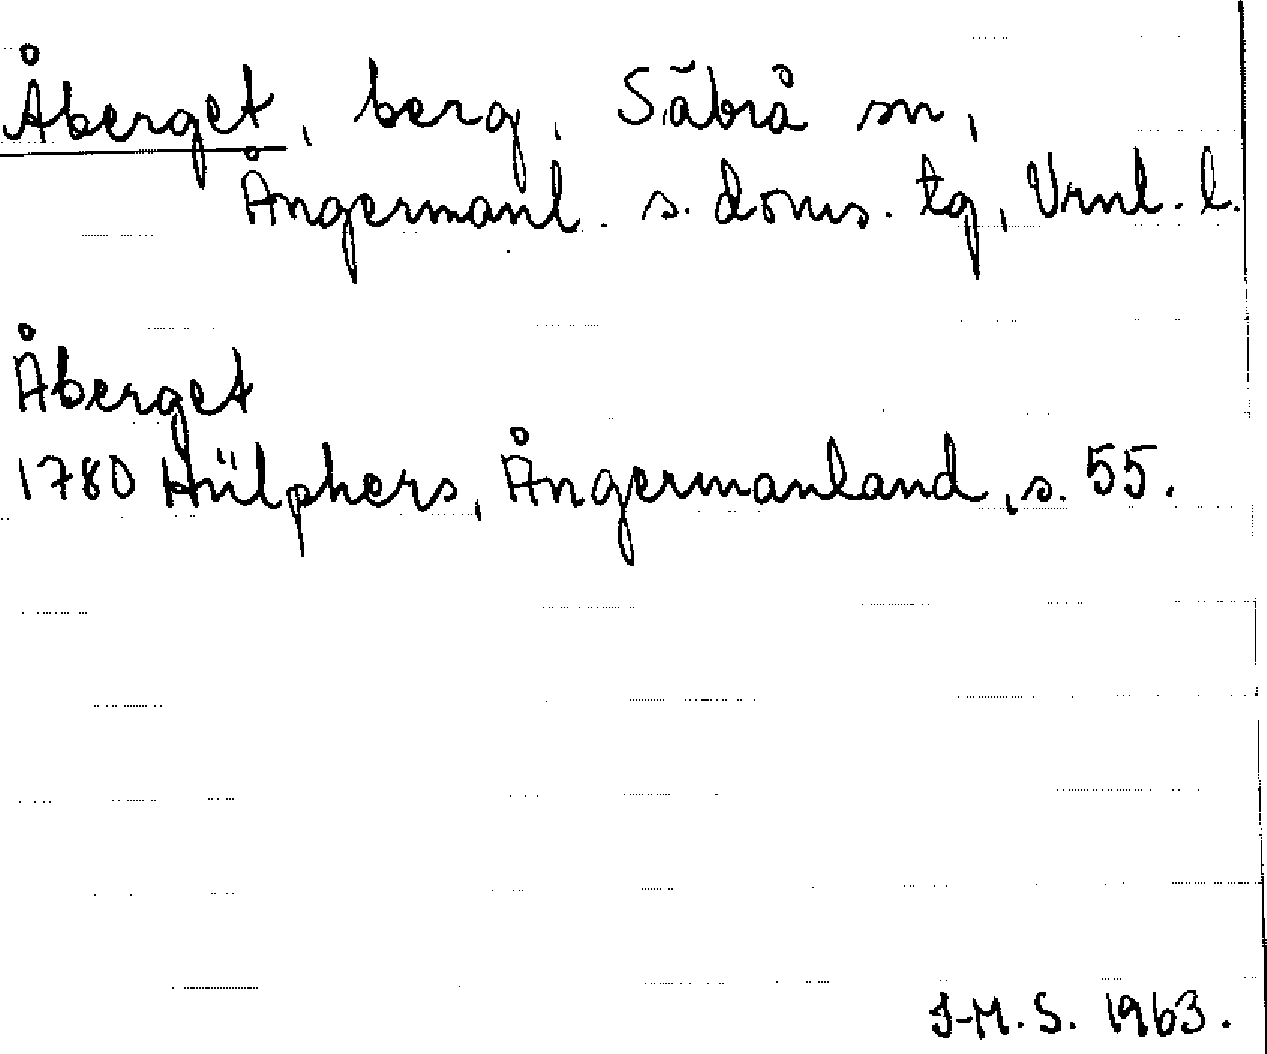 Åberget, berg, Säbrå sn,
Ångermanl. s. doms. tg, Vrnl. l.
Åberget
1780 Hülphers, Ångermanland, s. 55.
J-M.S. 1963.